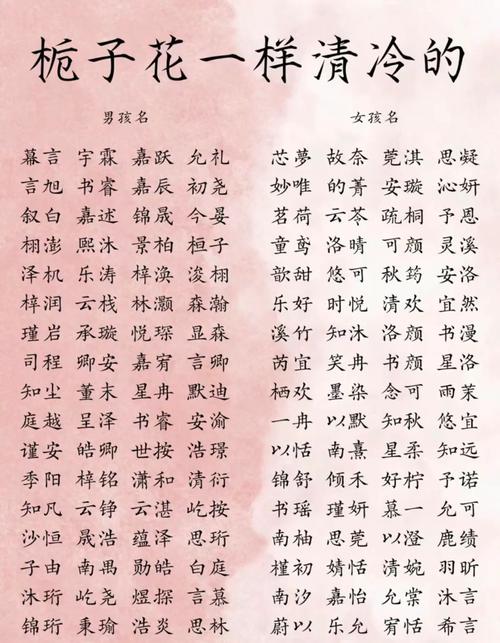 栀子花一样清冷的
男孩名 女孩名
幕言 宇霖 嘉跃 允礼 芯夢 故奈 莞淇 思凝
言旭 书睿 嘉辰 初尧 妙唯 的菁 安璇 沁妍
叙白 嘉述 锦晟 今晏 茗荷 云苓 疏桐 予恩
栩澎 熙沐 景柏 桓子 童鸢 洛晴 可颜 灵溪
泽机 乐涛 梓涣 浚栩 歆甜 悠可 秋筠 安洛
梓润 云栈 林灏 森瀚 乐好 时悦 清欢 宜然
瑾岩 承璇 悦琛 显森 溪竹 知沐 洛颜 书漫
司程 卿安 嘉宥 言卿 芮宜 笑冉 书眉 星洛
知尘 董末 星冉 默迪 栖欢 墨染 念可 雨茉
庭越 呈泽 书睿 安渝 一冉 以默 知秋 悠宜
谨安 皓卿 世按 浩璟 以恬 南熹 星柔 知远
季阳 梓铭 潇和 清衍 锦舒 倾禾 好柠 予诺
知凡 云铮 云湛 屹按 书瑶 瑾妍 慕一 允可
沙恒 晟浩 蕴泽 思珩 南柚 思莞 以澄 鹿绩
子由 南禺 勋皓 白庭 槿初 婧恬 清婉 羽昕
沐珩 屹尧 煜探 言慕 南汐 嘉怡 允棠 沐言
锦珩 秉瑜 浩炎 思林 蔚以 乐鱼 宥恬 希言